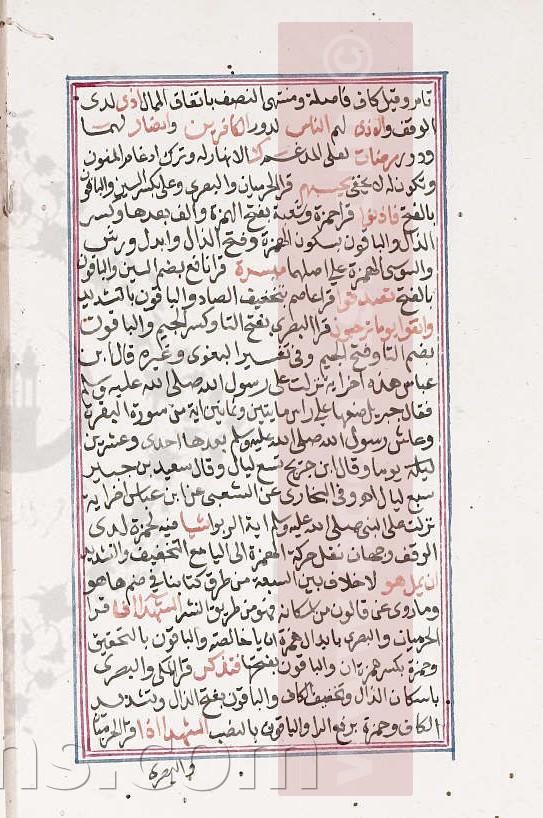 تام وقيل كاف فاصلة ومنتهى النصف باتفاق الممال اذى لدى
الوقف والاذى لهم الناس لدور الكافرين وانصار لهما
ودورى مرضات لعلى المدغم ك الانهار له وترك ادغام المنون
وتكون له لا يخفى يحسبهم قرا الحرميان والبصرى وعلى بكسر السين والباقون
بالفتح فاذنوا قرا حمزة وشعبة بفتح الهمزة والف بعدها وكسر
الذال والباقون بسكون الهمزة وفتح الذال وابدل ورش
والسوسى الهمزة على اصلهما ميسرة قرا نافع بضم السين والباقون
بالفتح تصدقوا قرا عاصم بتخفيف الصاد والباقون بالتشديد
واتقوا يوما ترجعون قرا البصرى بفتح التا وكسر الجيم والباقون
بضم التا وفتح الجيم وفى تفسير البغوى وغيره قال ابن
عباس هذه اخر اية نزلت على رسول الله صلى الله عليه وسلم
فقال جبريل ضعها على راس مايتين وثمانين اية من سورة البقرة
وعاش رسول الله صلى الله عليه وسلم بعدها احدى وعشرين
ليلة يوما وقال ابن جريج تسع ليال وقال سعيد بن جبير
سبع ليال اهـ وفى البخارى عن الشعبى عن ابن عباس اخر اية
نزلت على النبى صلى الله عليه وسلم اية الربوا شيا منه لحمزة لدى
الوقف وجهان نقل حركة الهمزة الى اليا مع التخفيف والتشديد
ان يمل هو لا خلاف بين السبعة من طرق كتابنا فى ضم ها هو
وما روى عن قالون من اسكانه فهو من طريق النشر الشهدا ان قرا
الحرميان والبصرى بابدال همزة ان يا خالصة والباقون بالتحقيق
وحمزة بكسر همزة ان والباقون بفتحها فتذكر قرا المكى والبصرى
باسكان الذال وتخفيف الكاف والباقون بفتح الذال وتشديد
الكاف وحمزة برفع الرا والباقون بالنصب الشهدا اذا قرا الحرميان
والبصرى
ns.com